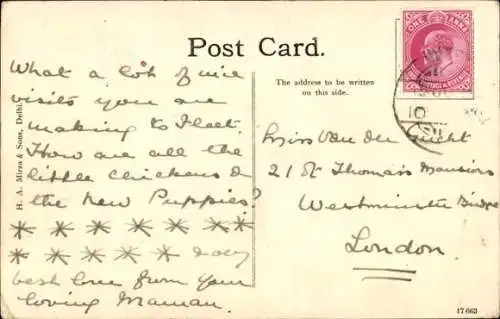 Post Card.
The address to be written
on this side.
ONE ANNA
H. A. Mirza & Sons, Delhi.
What a lot of nice
visits you are
making to Fleet.
How are all the
little chickens &
the New Puppies?
best love from your
loving Maman.
Miss Van der Gucht
21 St Thomas Mansions
Westminster Bridge
London.
17663